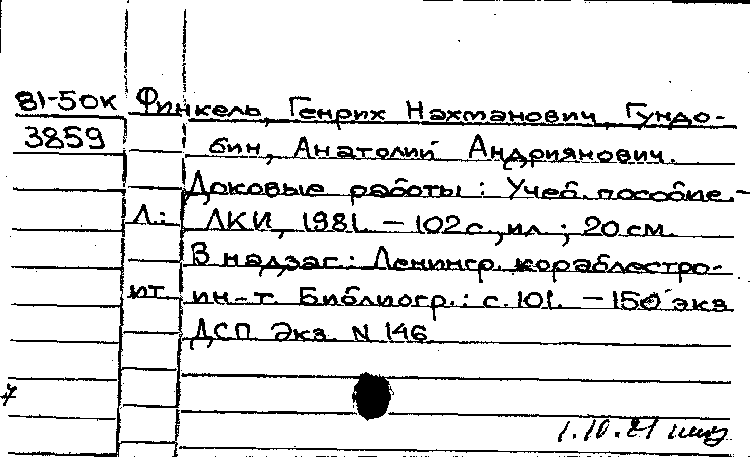 81-50К Финкель, Генрих Нахманович, Гундо-
3859 бин, Анатолий Андриянович.
Доковые работы : Учеб. пособие. -
Л.: ЛКИ, 1981. - 102 с., ил. ; 20 см.
В надзаг.: Ленингр. кораблестро-
ит. ин-т. Библиогр.: с. 101. - 150 экз
ДСП Экз. N 146
7
1.10.21